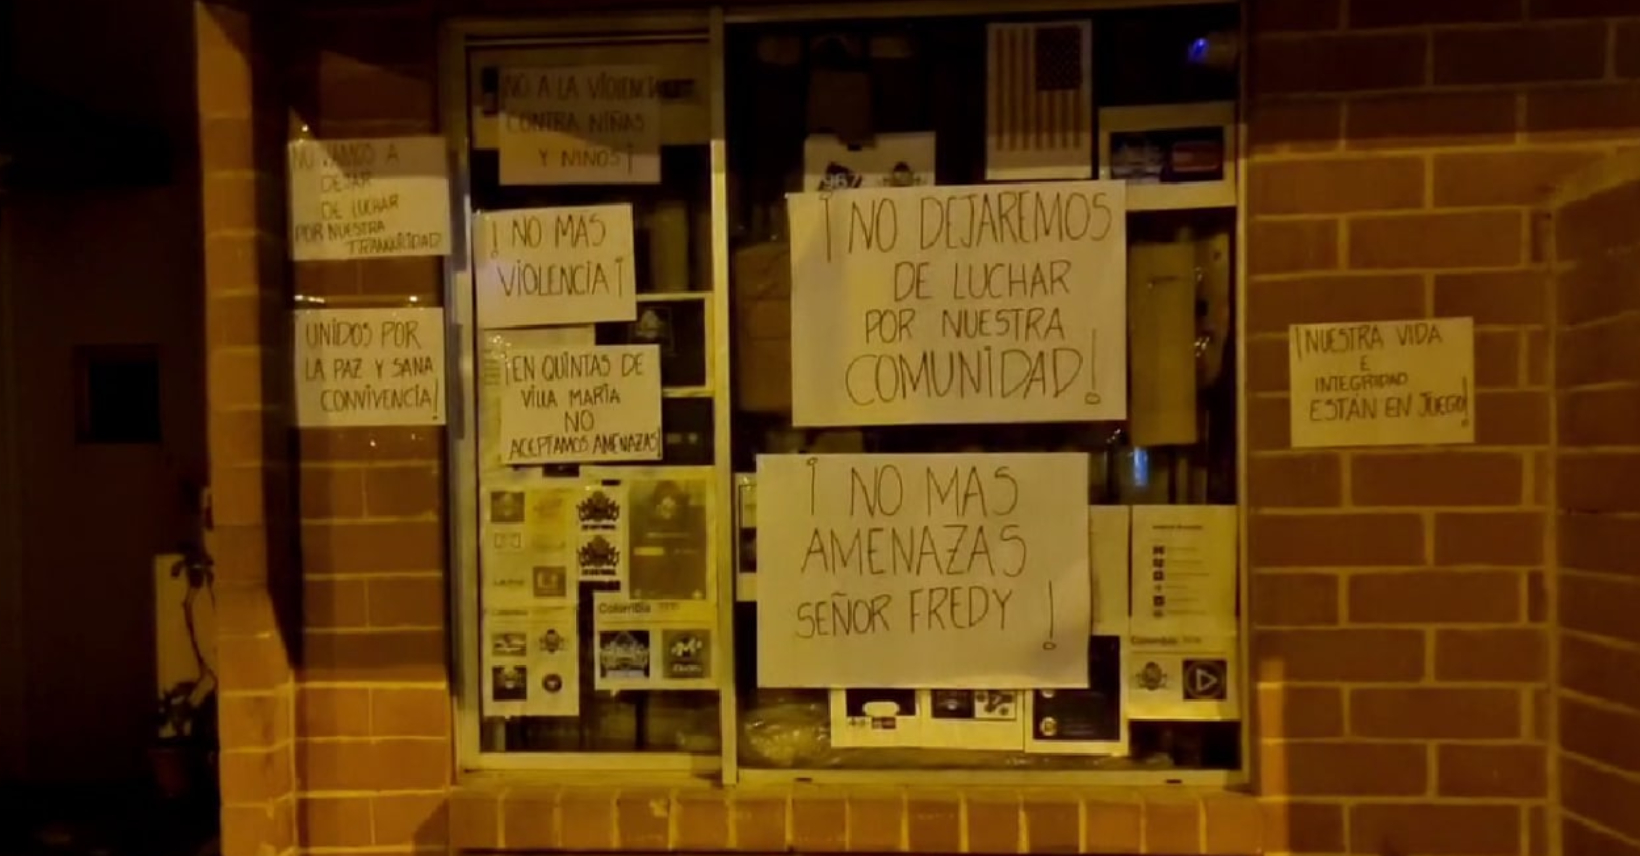 NO VAMOS A
DEJAR
DE LUCHAR
POR NUESTRA
TRANQUILIDAD
UNIDOS POR
LA PAZ Y SANA
CONVIVENCIA!
NO A LA VIOLENCIA
CONTRA NIÑAS
Y NIÑOS!
¡NO MAS
VIOLENCIA¡
¡EN QUINTAS DE
VILLA MARIA
NO
ACEPTAMOS AMENAZAS!
967
¡NO DEJAREMOS
DE LUCHAR
POR NUESTRA
COMUNIDAD!
¡NO MAS
AMENAZAS
SEÑOR FREDY!
¡NUESTRA VIDA
E
INTEGRIDAD
ESTÁN EN JUEGO!
Colombia
Colombia